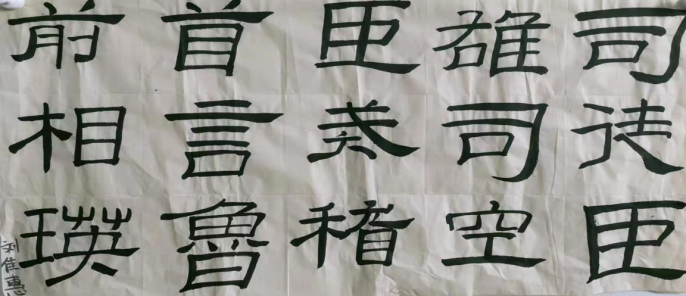 司徒臣
雄司空
臣戒稽
首言魯
前相瑛
刘佳惠